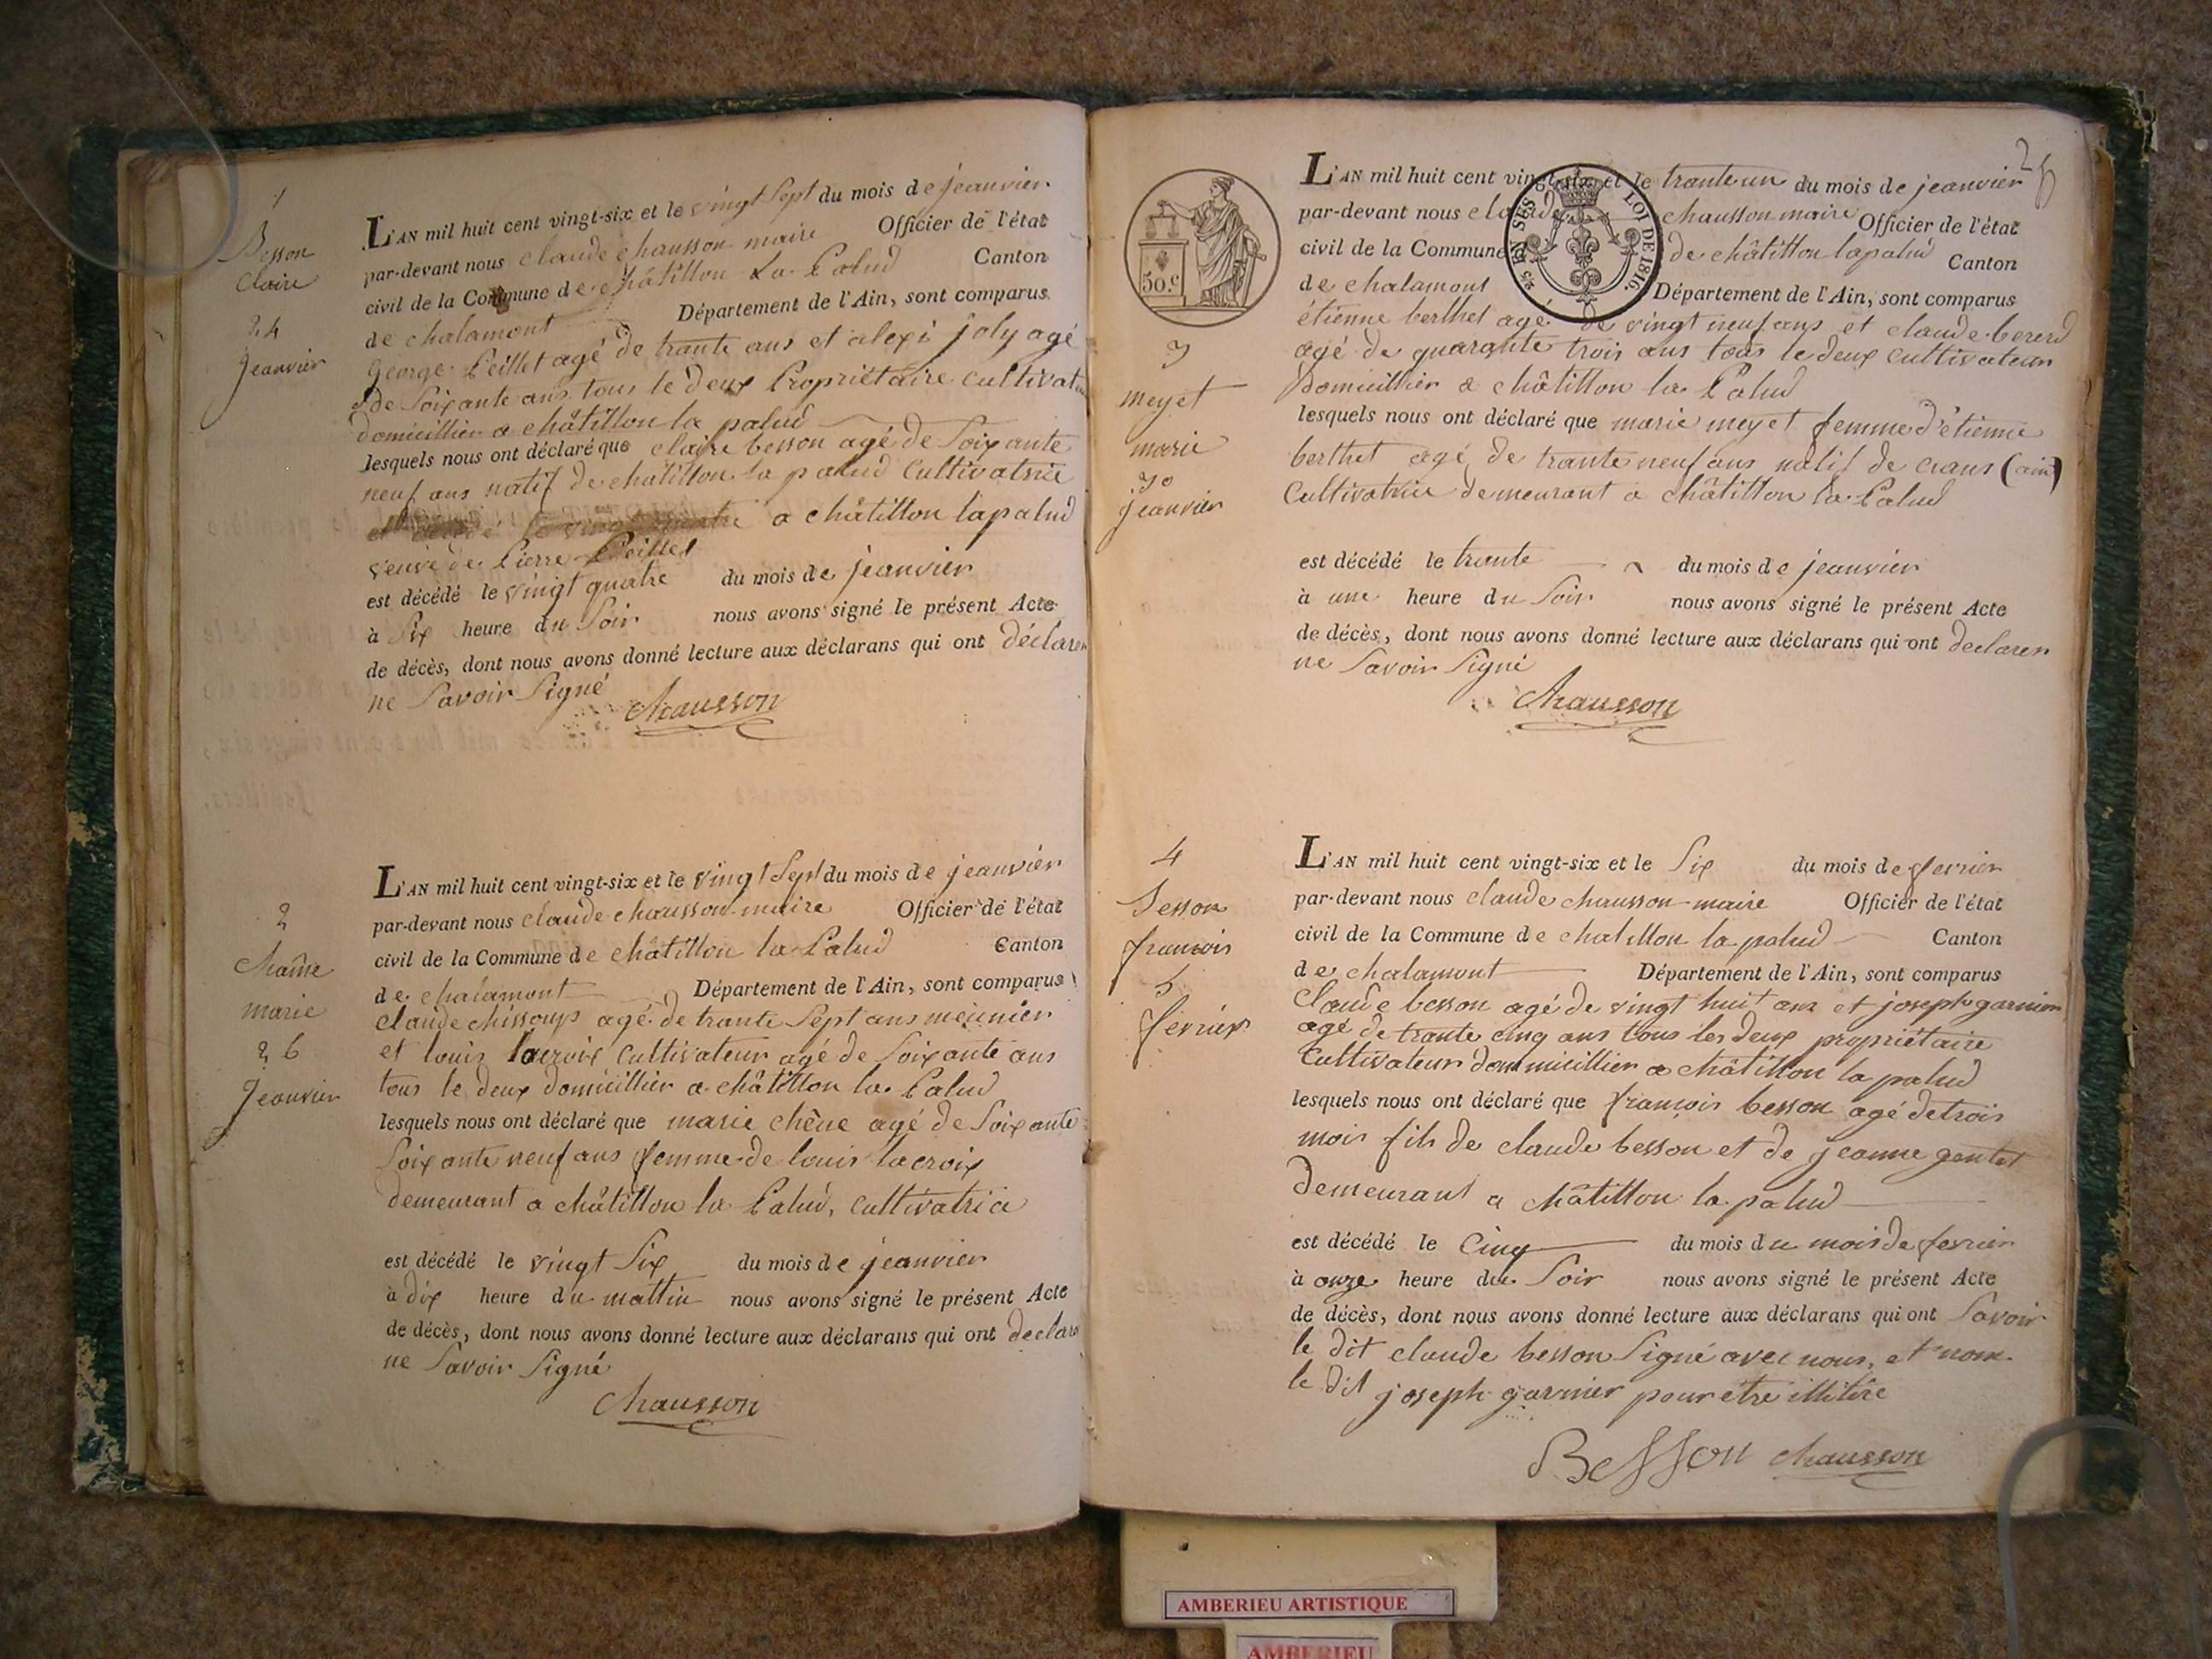 1
Besson
Claire
24
Jeanvier
L'AN mil huit cent vingt-six et le vingt sept du mois de jeanvier
par-devant nous claude chausson maire Officier de l'état
civil de la Commune de châtillon La Palud Canton
de chalamont Département de l'Ain, sont comparus
George Peillet agé de trante ans et alexi joly agé
de soixante ans tous le deux Propriétaire cultivat
domicillier a châtillon la palud
lesquels nous ont déclaré que claire besson agé de soixante
neuf ans natif de chatillon la palud Cultivatrice
a châtillon lapalud
veuve de Pierre Peillet
est décédé le vingt quatre du mois de jeanvier
à six heure du soir nous avons signé le présent Acte
de décès, dont nous avons donné lecture aux déclarans qui ont déclaren
ne savoir signé
Chausson
2
chaîne
marie
26
Jeanvier
L'AN mil huit cent vingt-six et le vingt sept du mois de jeanvier
par-devant nous claude chausson maire Officier de l'état
civil de la Commune de châtillon la Palud Canton
de chalamont Département de l'Ain, sont comparus
claude chissoup agé de trante sept ans meunier
et louis lacroix cultivateur agé de soixante ans
tous le deux domicillier a châtillon la Palud
lesquels nous ont déclaré que marie chêne agé de soixante
soixante neuf ans femme de louis lacroix
demeurant a châtillon la Palud, cultivatrice
est décédé le vingt six du mois de jeanvier
à dix heure du mattin nous avons signé le présent Acte
de décès, dont nous avons donné lecture aux déclarans qui ont declare
ne savoir signé
Chausson
50.c
25 EN SUS LOI DE 1816.
3
meyet
marie
30
jeanvier
L'AN mil huit cent vingt-six et le tranteun du mois de jeanvier
par-devant nous claude chausson maire Officier de l'état
civil de la Commune de châtillon lapalud Canton
de chalamont Département de l'Ain, sont comparus
étienne berthet agé de vingt neuf ans et claude bererd
agé de quarante trois ans tous le deux cultivateur
domicillier a châtillon la Palud
lesquels nous ont déclaré que marie meyet femme d'étienne
berthet agé de trante neuf ans natif de crans (ain)
Cultivatrice demeurant a châtillon la Palud
est décédé le trante du mois de jeanvier
à une heure du soir nous avons signé le présent Acte
de décès, dont nous avons donné lecture aux déclarans qui ont declaren
ne savoir signé
Chausson
4
Besson
francois
5
fevrier
L'AN mil huit cent vingt-six et le six du mois de fevrier
par-devant nous claude chausson maire Officier de l'état
civil de la Commune de chatillon la palud Canton
de chalamont Département de l'Ain, sont comparus
Claude besson agé de vingt huit ans et joseph garnier
agé de trante cinq ans tous les deux propriétaire
Cultivateur dommicillier a châtillon la palud
lesquels nous ont déclaré que françois besson agé de trois
mois fils de claude besson et de jeanne gentet
demeurant a châtillon la palud
est décédé le Cinq du mois du mois de fevrier
à onze heure du soir nous avons signé le présent Acte
de décès, dont nous avons donné lecture aux déclarans qui ont savoir
le dit claude besson signé avec nous, et non
le dit joseph garnier pour etre illitire
Besson chausson
AMBERIEU ARTISTIQUE
AMBERIEU